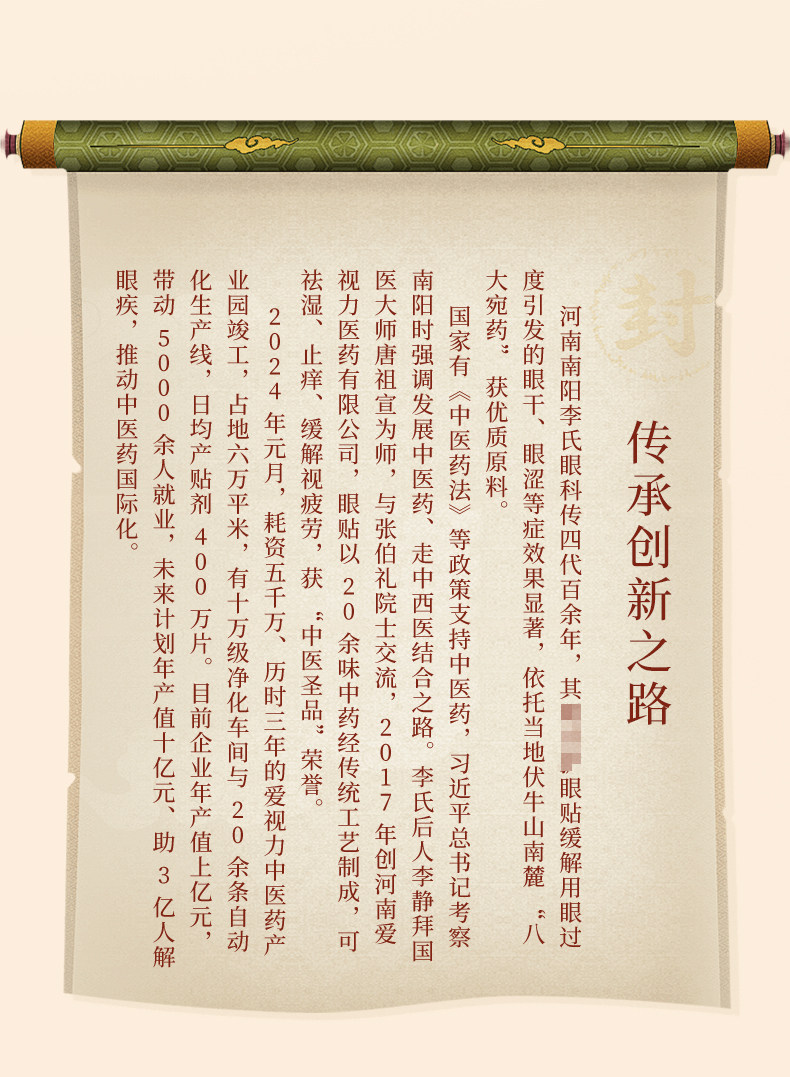 封
传承创新之路
河南南阳李氏眼科传四代百余年，其眼贴缓解用眼过
度引发的眼干、眼涩等症效果显著，依托当地伏牛山南麓“八
大宛药”获优质原料。
国家有《中医药法》等政策支持中医药，习近平总书记考察
南阳时强调发展中医药、走中西医结合之路。李氏后人李静拜国
医大师唐祖宣为师，与张伯礼院士交流，2017年创河南爱
视力医药有限公司，眼贴以20余味中药经传统工艺制成，可
祛湿、止痒、缓解视疲劳，获“中医圣品”荣誉。
2024年元月，耗资五千万、历时三年的爱视力中医药产
业园竣工，占地六万平米，有十万级净化车间与20余条自动
化生产线，日均产贴剂400万片。目前企业年产值上亿元，
带动5000余人就业，未来计划年产值十亿元、助3亿人解
眼疾，推动中医药国际化。